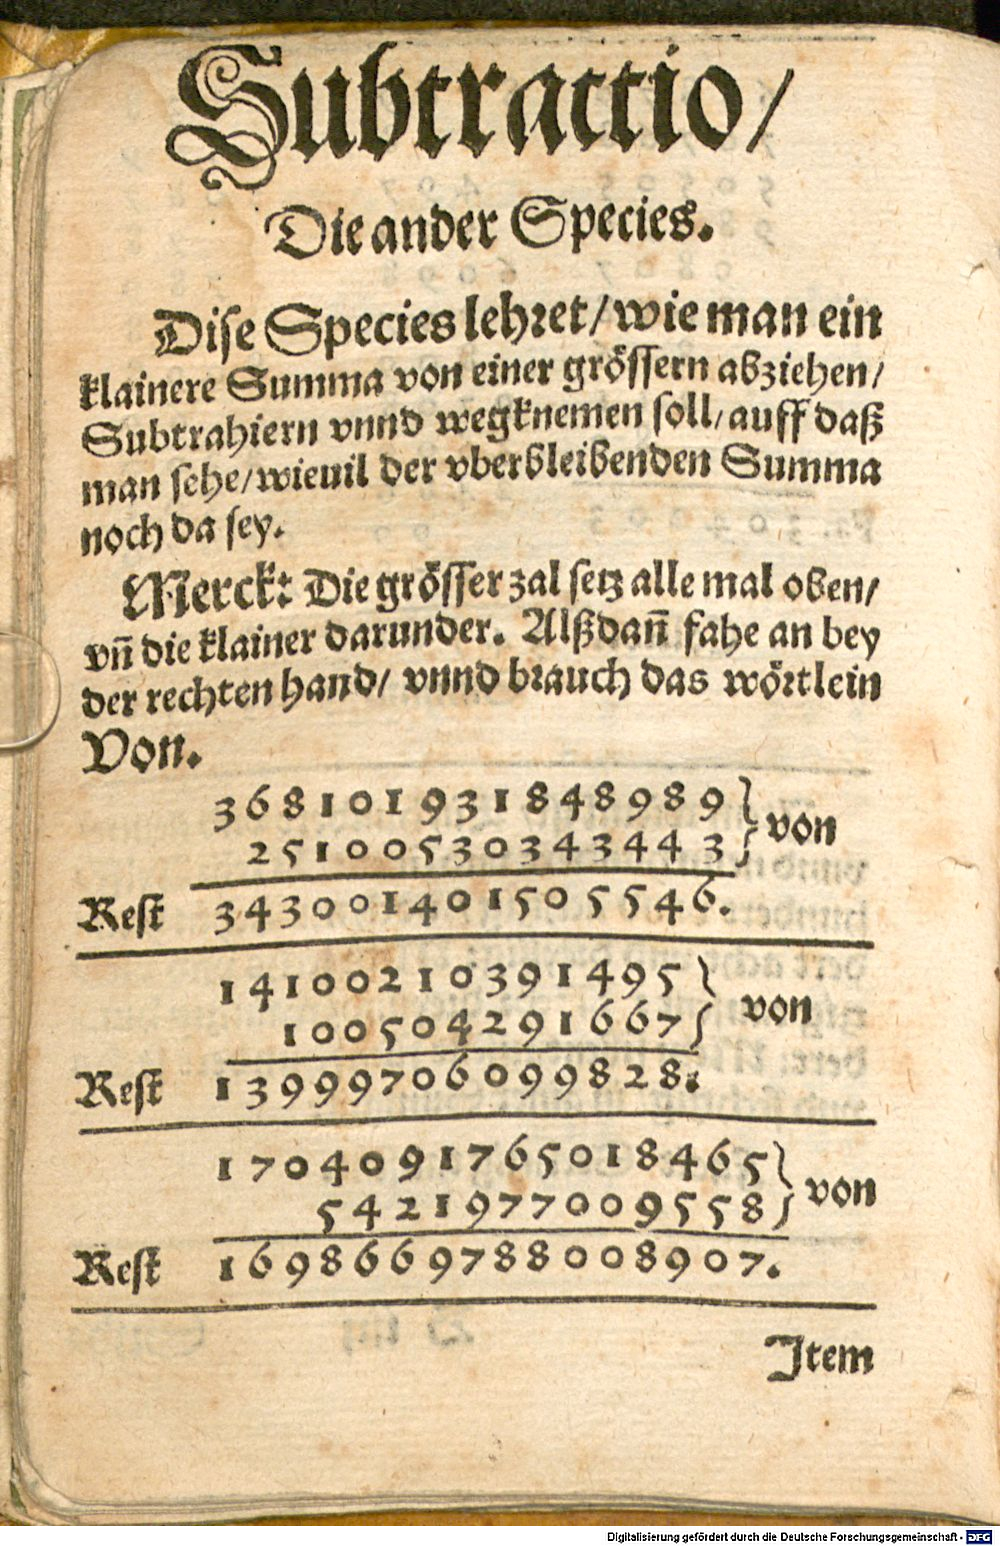 Subtractio/
Die ander Species.
Dise Species lehret/wie man ein
klainere Summa von einer grössern abziehen/
Subtrahiern vnnd wegknemen soll/auff daß
man sehe/wieuil der vberbleibenden Summa
noch da sey.
Merck: Die grösser zal setz alle mal oben/
vñ die klainer darunder. Alßdañ fahe an bey
der rechten hand/ vnnd brauch das wörtlein
Von.
368101931848989 } von
25100530343443
Rest 343001401505546.
14100210391495 } von
100504291667
Rest 13999706099828.
1704091765018465 } von
5421977009558
Rest 1698669788008907.
Item
Digitalisierung gefördert durch die Deutsche Forschungsgemeinschaft - DFG